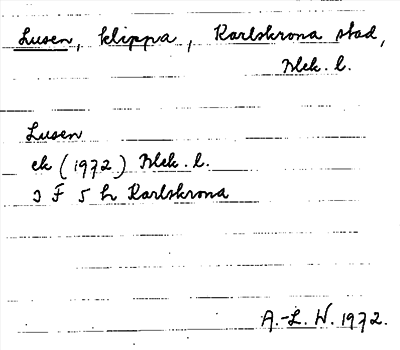 Lusen, klippa, Karlskrona stad,
Blek. l.
Lusen
ek (1972) Blek. l.
3 F 5 h Karlskrona
A.-L. W. 1972.